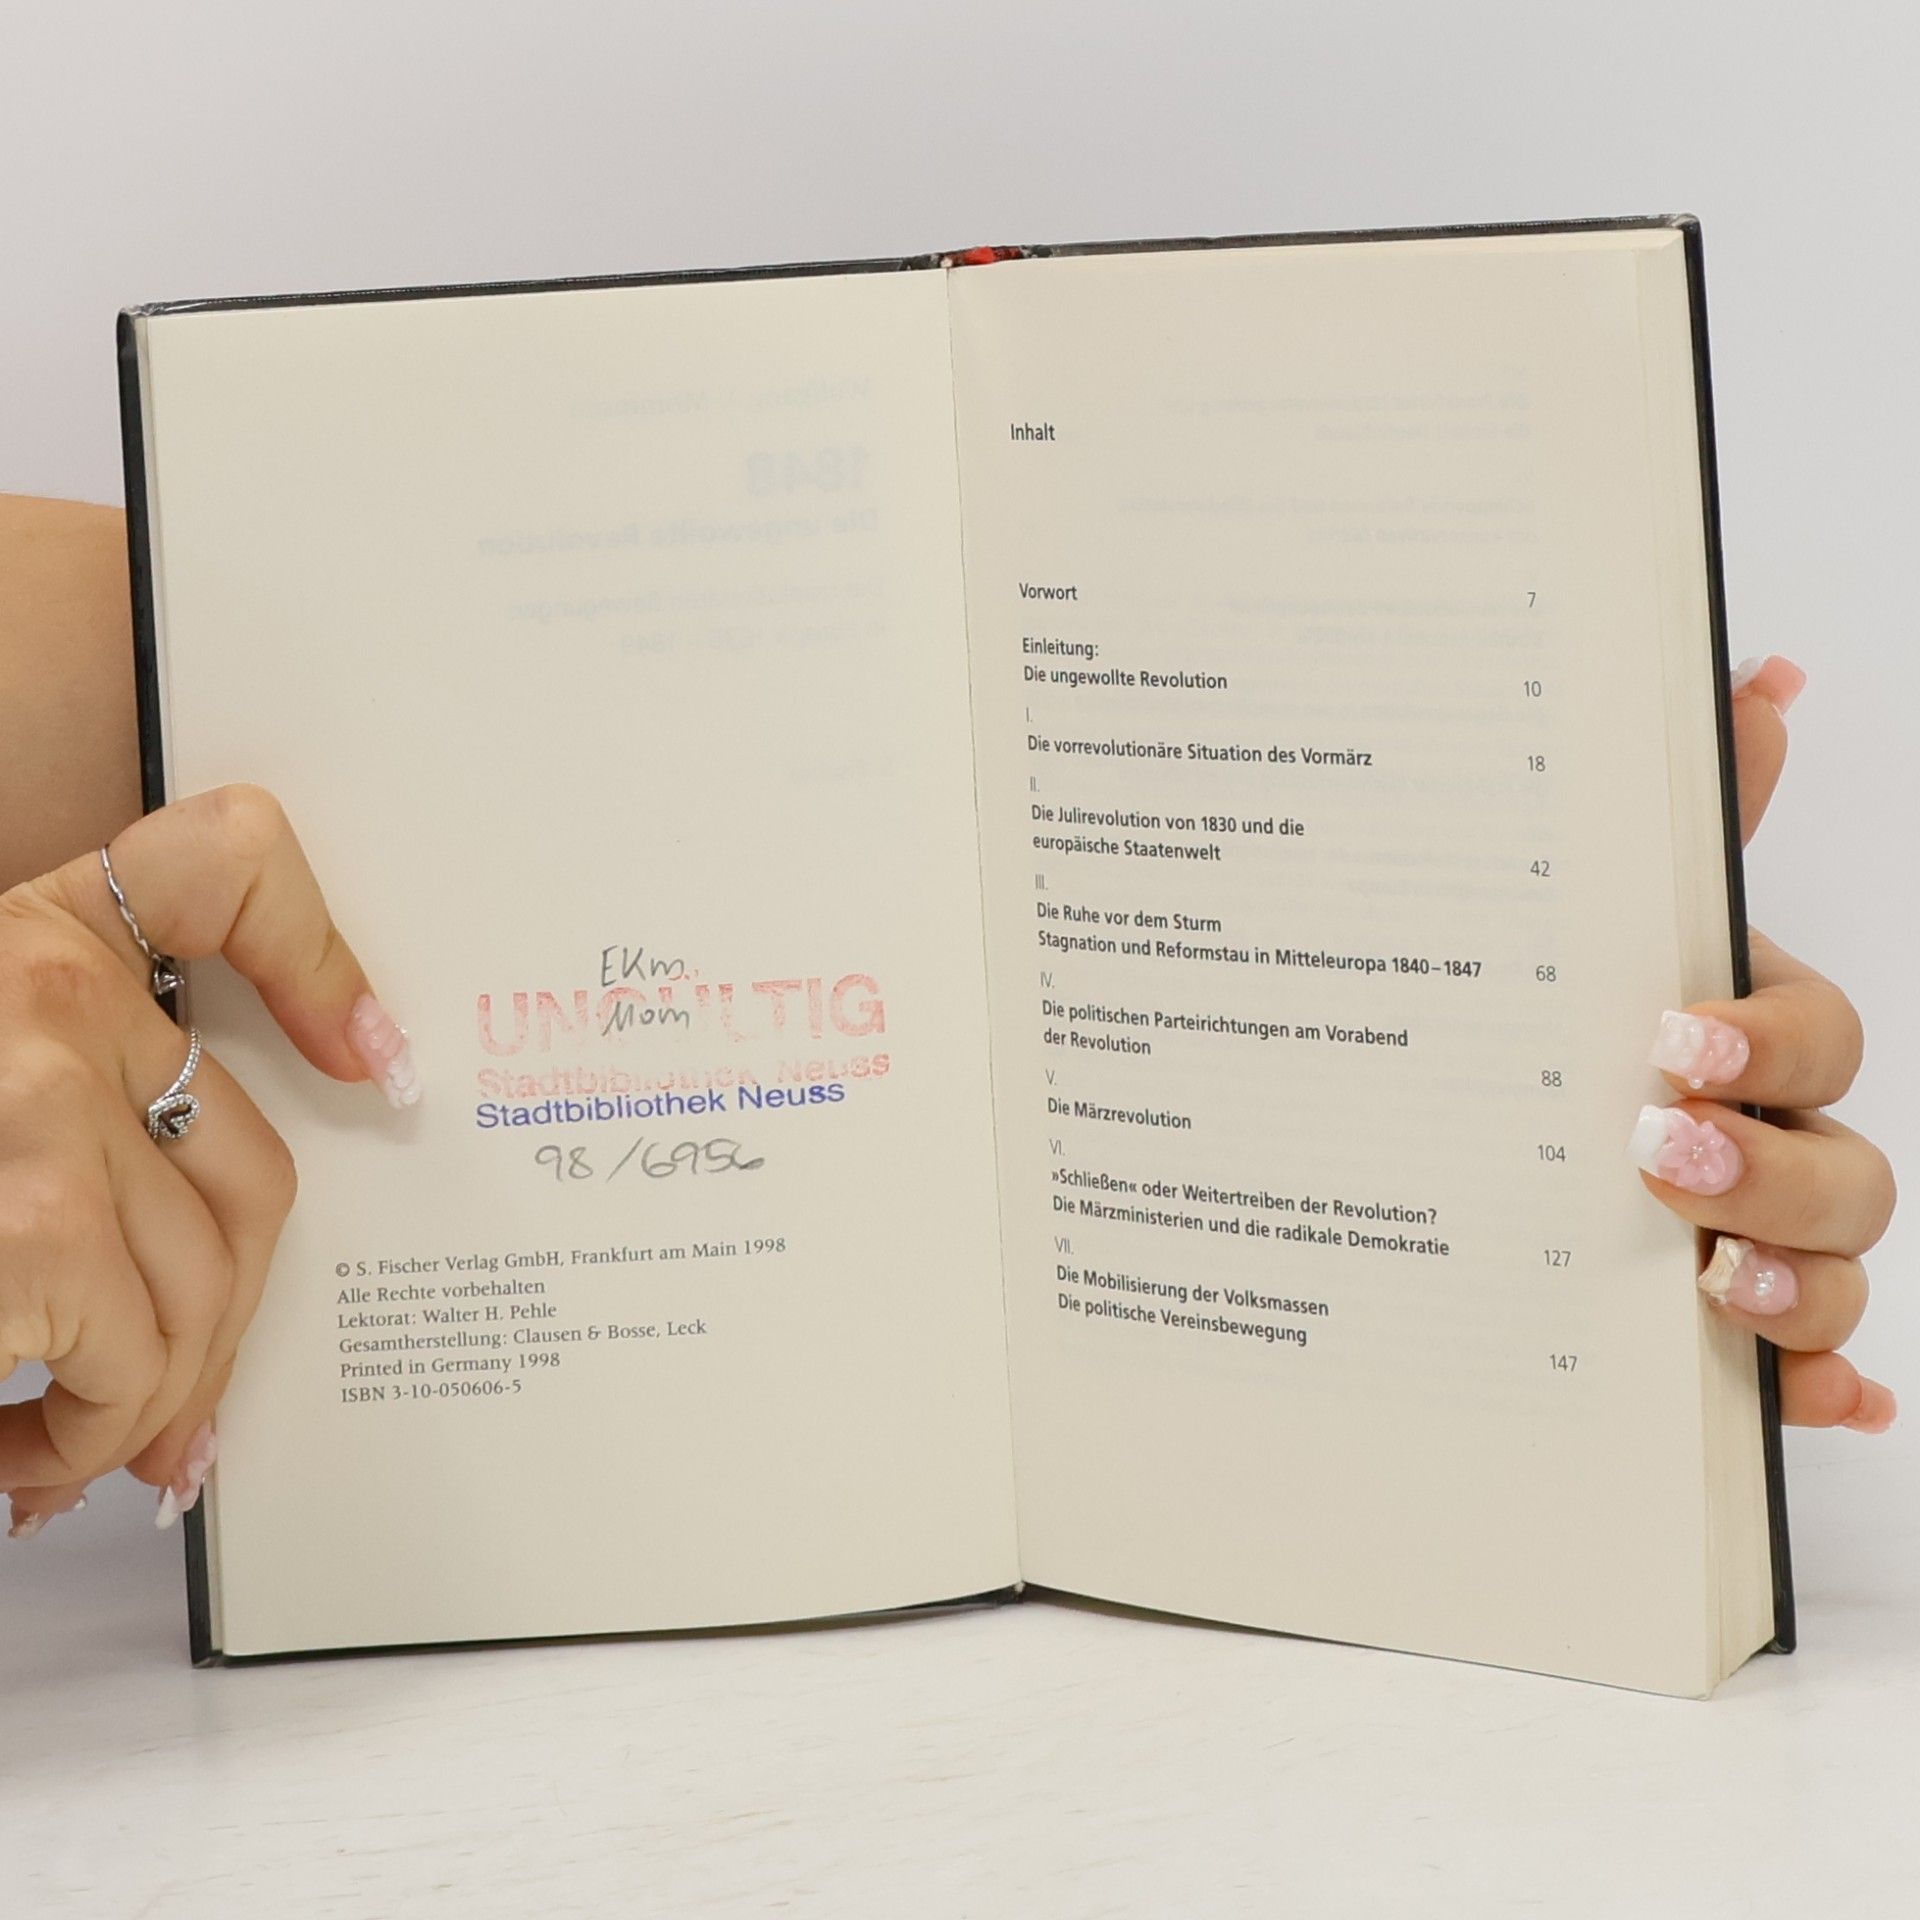 EKm
Mom
UNGÜLTIG
Stadtbibliothek Neuss
Stadtbibliothek Neuss
98/6956
© S. Fischer Verlag GmbH, Frankfurt am Main 1998
Alle Rechte vorbehalten
Lektorat: Walter H. Pehle
Gesamtherstellung: Clausen & Bosse, Leck
Printed in Germany 1998
ISBN 3-10-050606-5
Inhalt
Vorwort 7
Einleitung:
Die ungewollte Revolution 10
I.
Die vorrevolutionäre Situation des Vormärz 18
II.
Die Julirevolution von 1830 und die
europäische Staatenwelt 42
III.
Die Ruhe vor dem Sturm
Stagnation und Reformstau in Mitteleuropa 1840–1847 68
IV.
Die politischen Parteirichtungen am Vorabend
der Revolution 88
V.
Die Märzrevolution 104
VI.
»Schließen« oder Weitertreiben der Revolution?
Die Märzministerien und die radikale Demokratie 127
VII.
Die Mobilisierung der Volksmassen
Die politische Vereinsbewegung 147